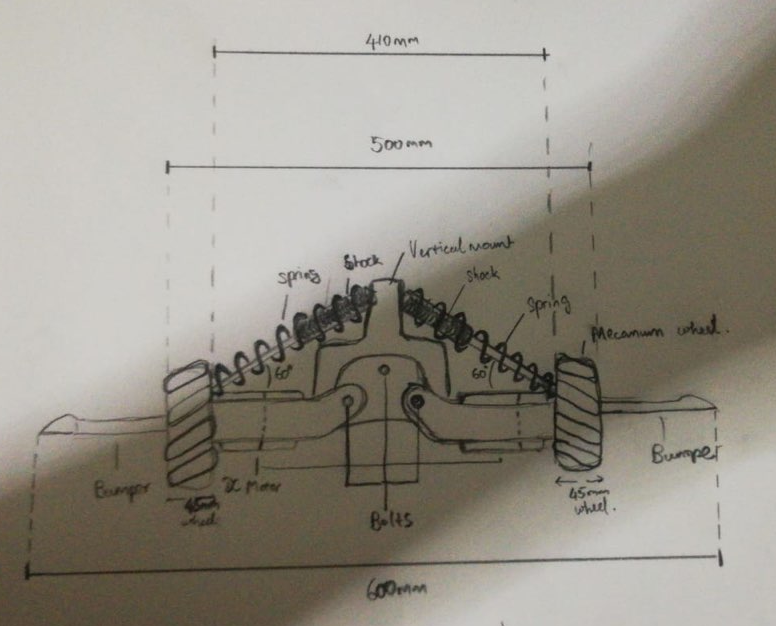 410mm
500mm
Vertical mount
Shock
Spring
Shock
Spring
Mecanum wheel.
60°
60°
Bumper
45mm
wheel
DC Motor
Bolts
45mm
wheel.
Bumper
600mm